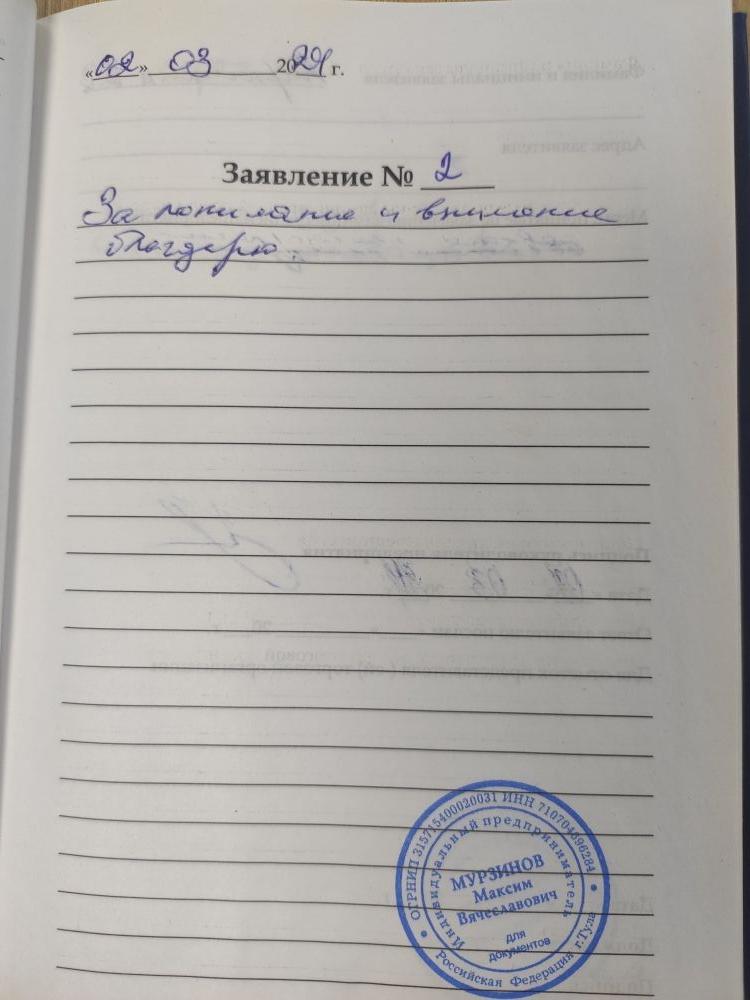 «02» 03 2024 г.
Заявление № 2
За понимание и внимание
благодарю.
ОГРНИП 315715400020031 ИНН 710704696284
Индивидуальный предприниматель
МУРЗИНОВ
Максим
Вячеславович
для
документов
Российская Федерация г.Тула